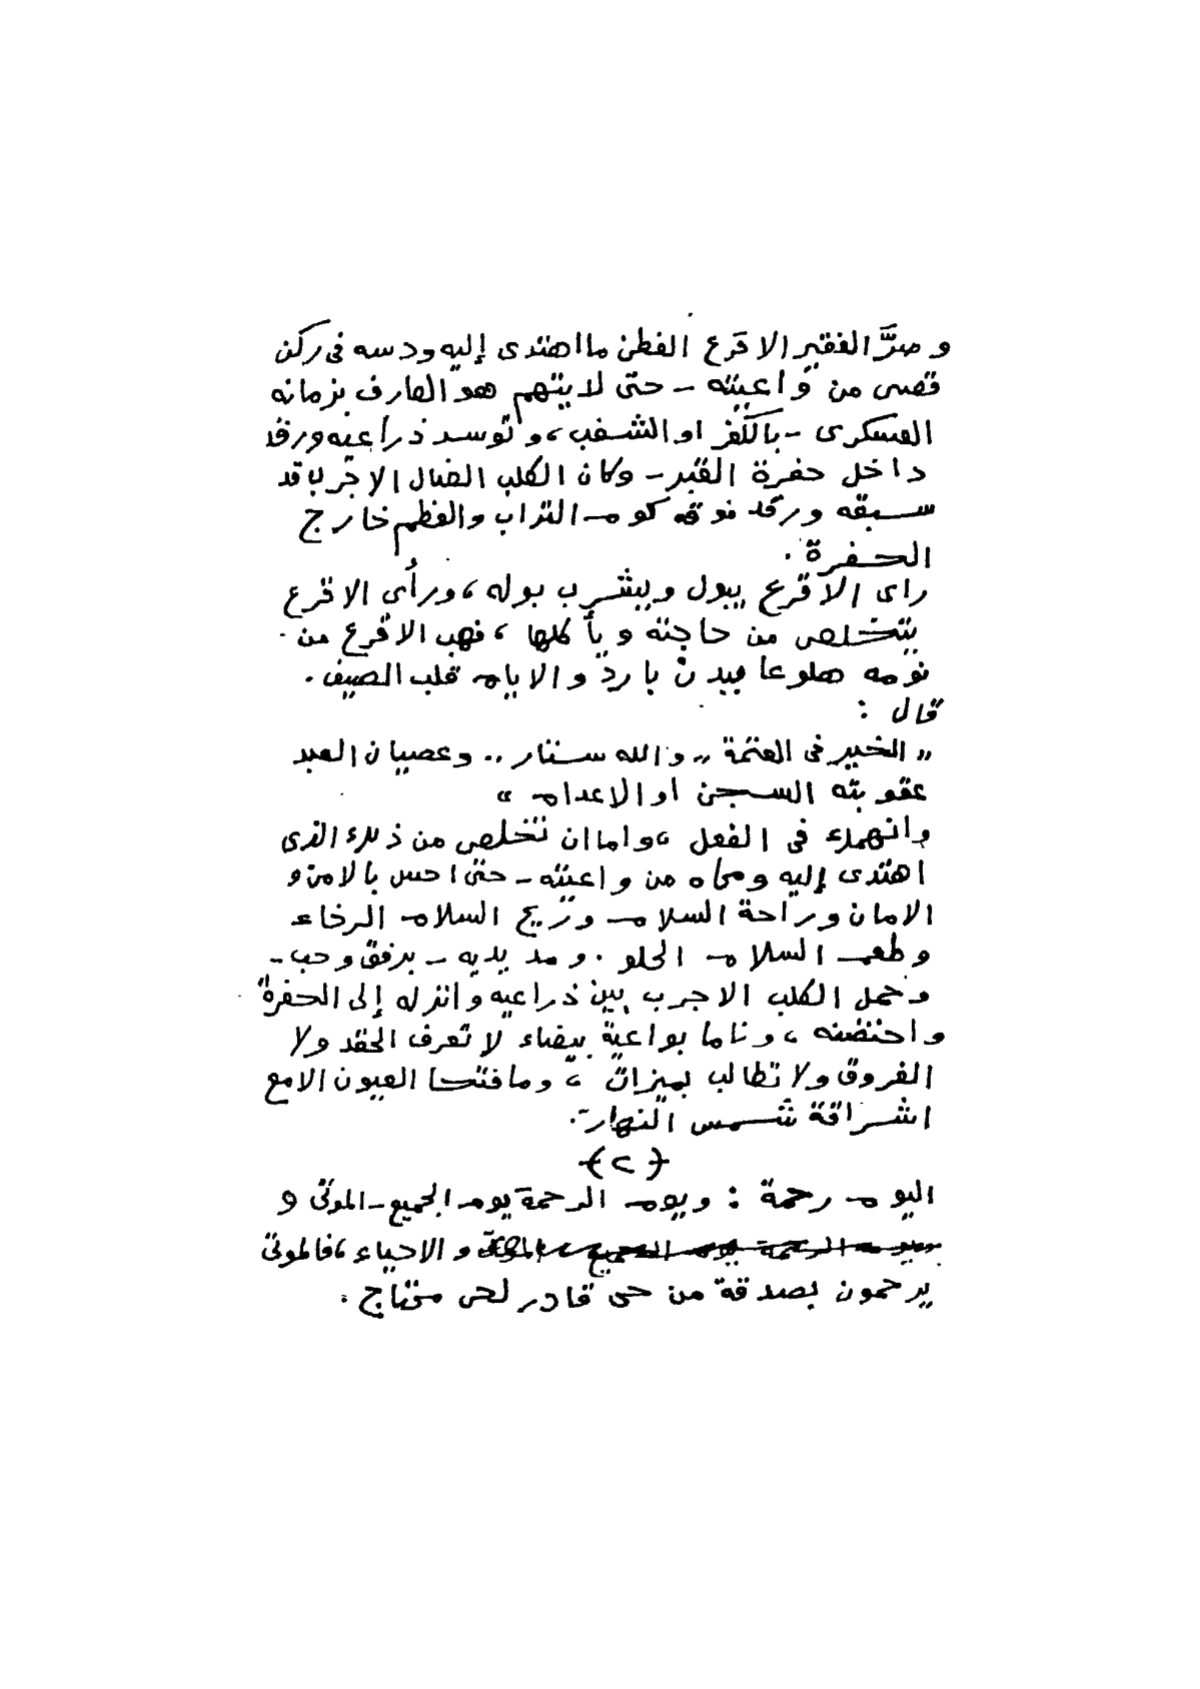 و صرَّ الفقير الاقرع الفطن ما اهتدى إليه ودسه فى ركن
قصى من واعيته – حتى لا يتهم هو العارف بزمانه
العسكرى – بالكفر او الشغب، و توسد ذراعيه ورقد
داخل حفرة القبر – وكان الكلب الضال الاجرب قد
سبقه ورقد فوق كوم التراب والعظم خارج
الحفرة .
راى الاقرع يبول ويشرب بوله ، ورأى الاقرع
يتخلص من حاجته ويأكلها ، فهب الاقرع من
نومه هلوعا ببدن بارد والايام قلب الصيف .
قال :
" الخير فى العتمة " والله ستار .. وعصيان العبد
عقوبته السجن او الاعدام "
وانهمك فى الفعل ، واما ان تخلص من ذلك الذى
اهتدى إليه ومحاه من واعيته – حتى احس بالامن و
الامان وراحة السلام وريح السلام الرخاء
وطعم السلام الحلو . ومد يديه – برفق وحب –
وحمل الكلب الاجرب بين ذراعيه وانزله إلى الحفرة
واحتضنه ، وناما بواعية بيضاء لا تعرف الحقد ولا
الفروق ولا تطالب بميراث ، وما فتحا العيون الا مع
اشراقة شمس النهار .
{٢}
اليوم رحمة : ويوم الرحمة يوم الجميع – الموتى و
ويوم الرحمة يوم الجميع – الموتى والاحياء ، فالموتى
يرحمون بصدقة من حى قادر لحى محتاج .